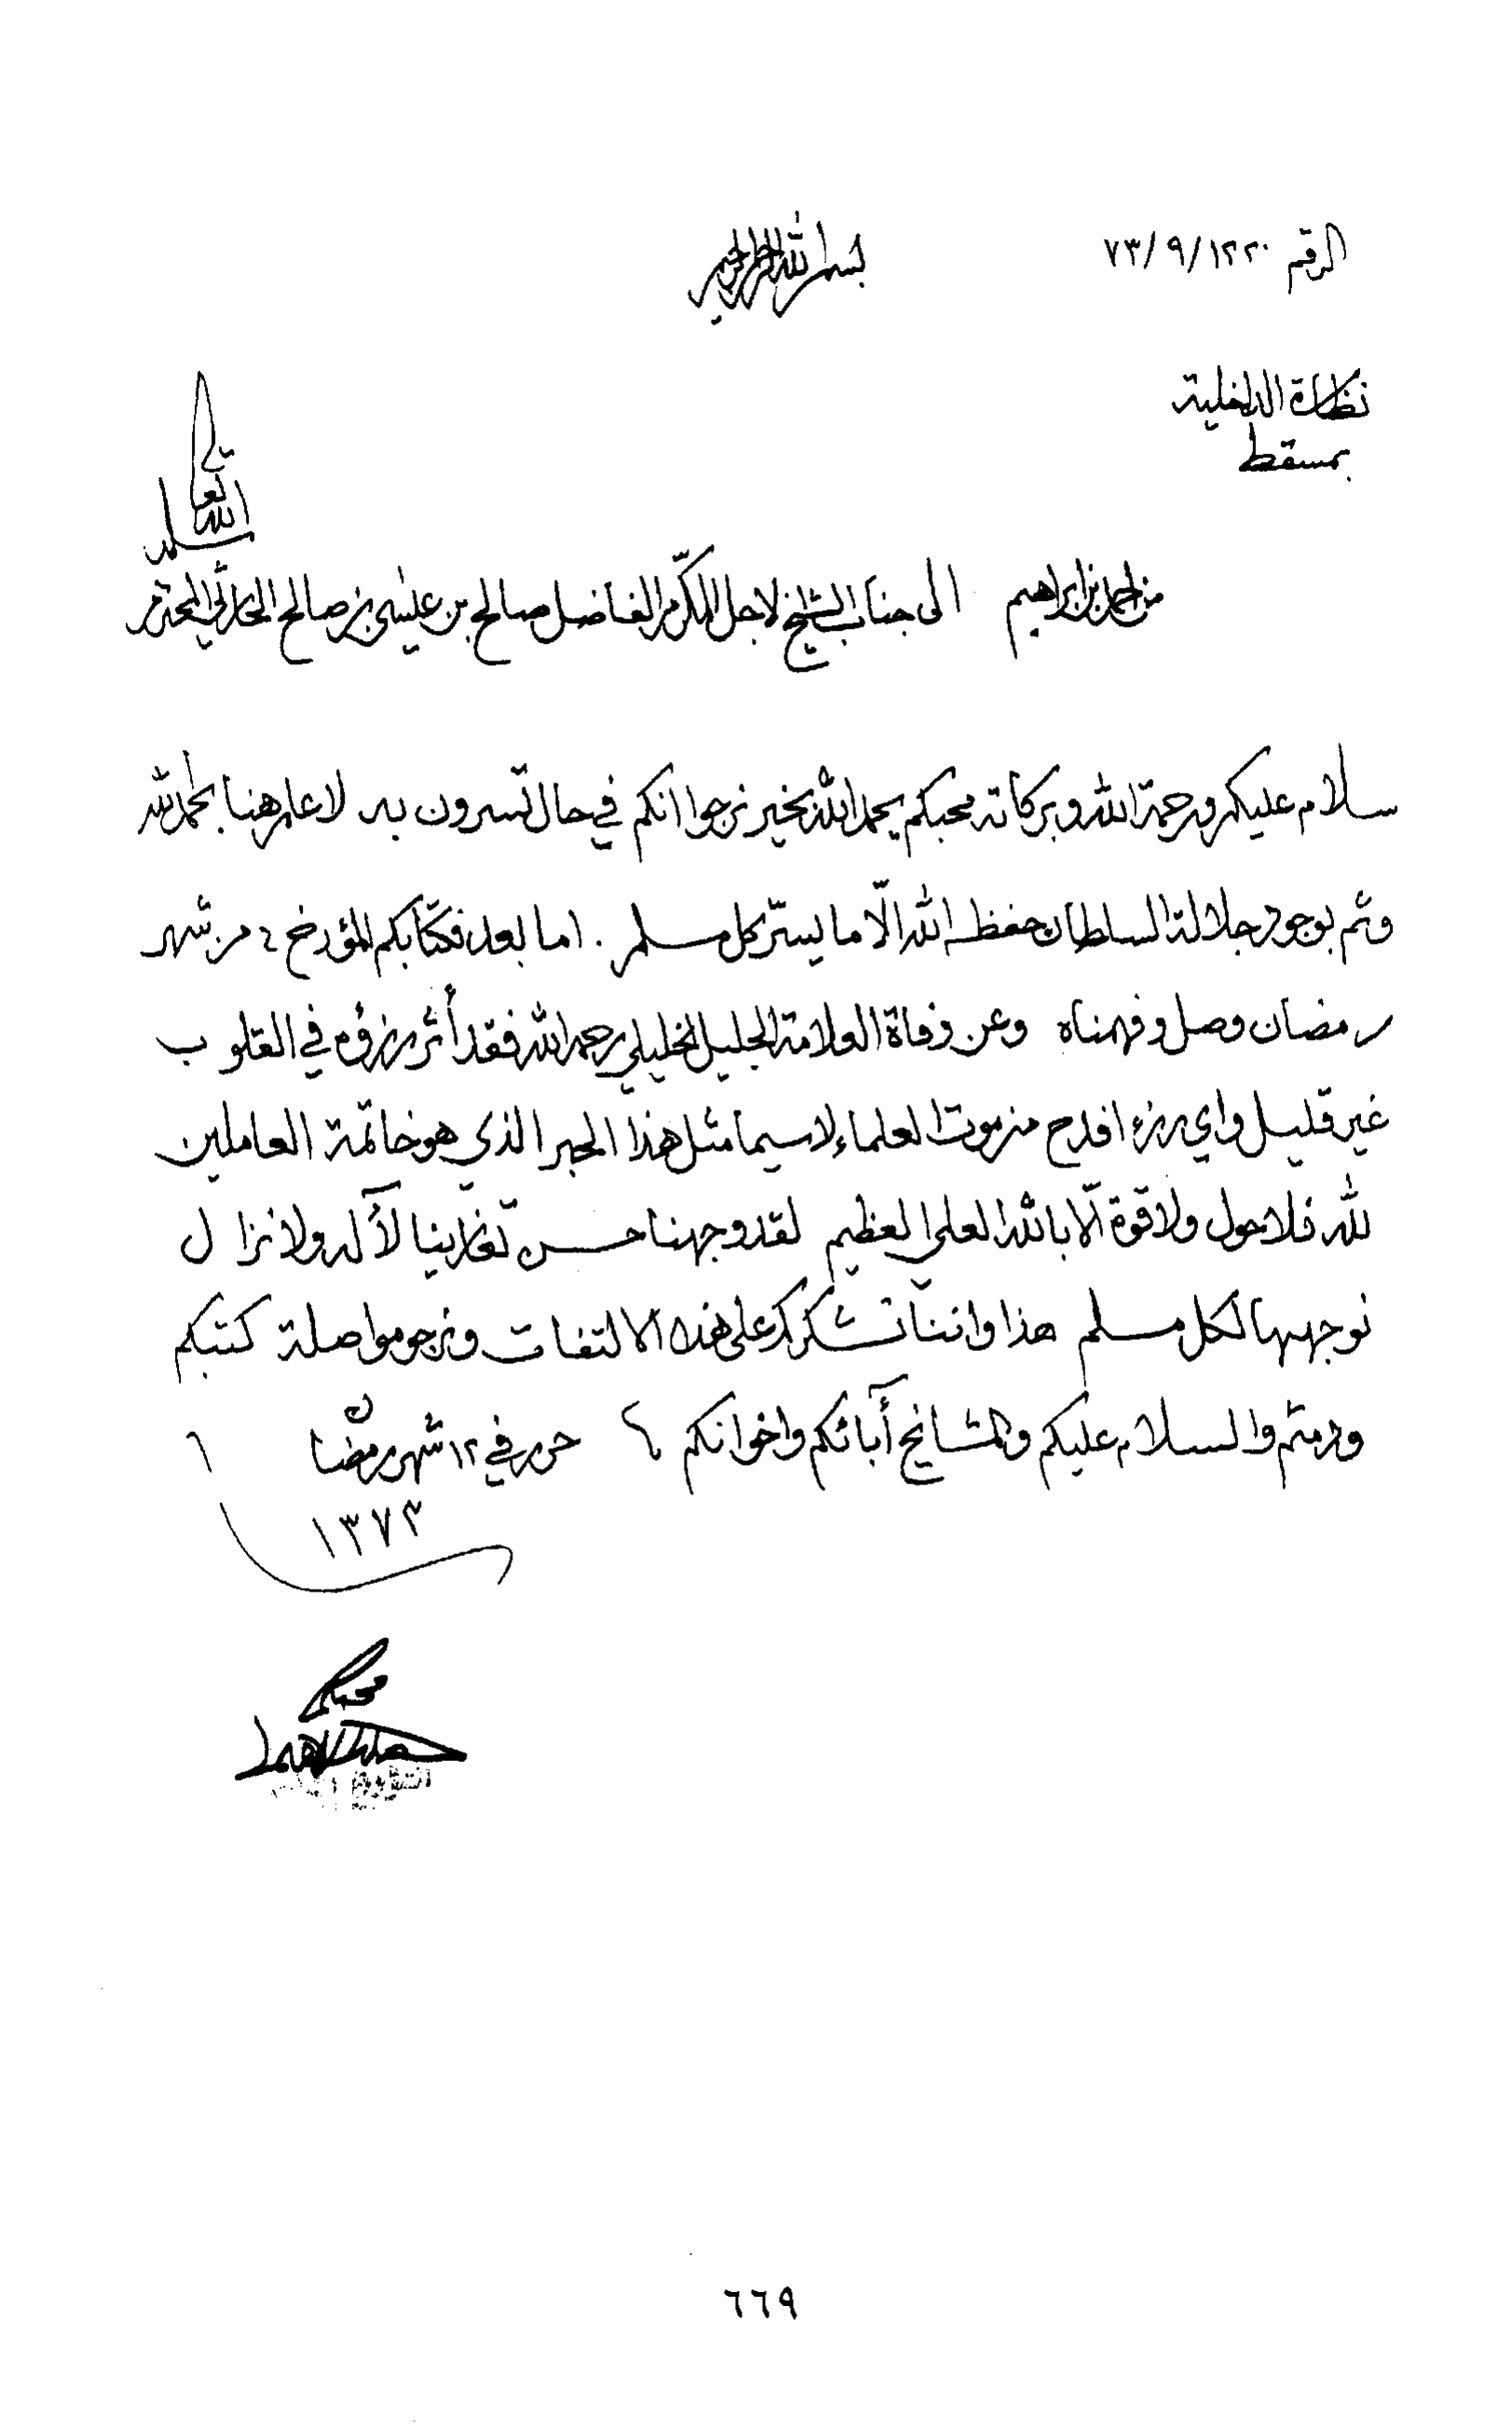 الرقم ١٢٢٠/٩/٧٣
بسم الله الرحمن الرحيم
نظارة الداخلية
بمسقط
سلمه الله تعالى
من احمد بن ابراهيم الى جناب الشيخ الاجل المكرّم الفاضل صالح بن عيسى بن صالح الحارثي المحترم
سلام عليكم ورحمة الله وبركاته محبكم بحمد الله بخير نرجوا انكم في حال تسرون به لا علم هنا بحمد لله
وثم بوجود جلالة السلطان حفظه الله الّا ما يسرّ كل مسلم . اما بعد فكتابكم المؤرخ ٢ من شهر
رمضان وصل وفهمناه وعن وفاة العلامة الجليل الخليلي رحمه الله فقد أثر رزؤه في القلوب
غير قليل واي رزء افدح من موت العلماء لاسيما مثل هذا الحبر الذي هو خاتمة العاملين
لله فلا حول ولا قوة الّا بالله العلي العظيم لقد وجهنا حسن تعازينا لأله ولا نزال
نوجهها لكل مسلم هذا واننا نشكركم على هذه الالتفات ونرجو مواصلة كتبكم
ودمتم والسلام عليكم والمشائخ أبائكم واخوانكم حرر في ١٢ شهر رمضان
١٣٧٣
محبكم
٦٦٩